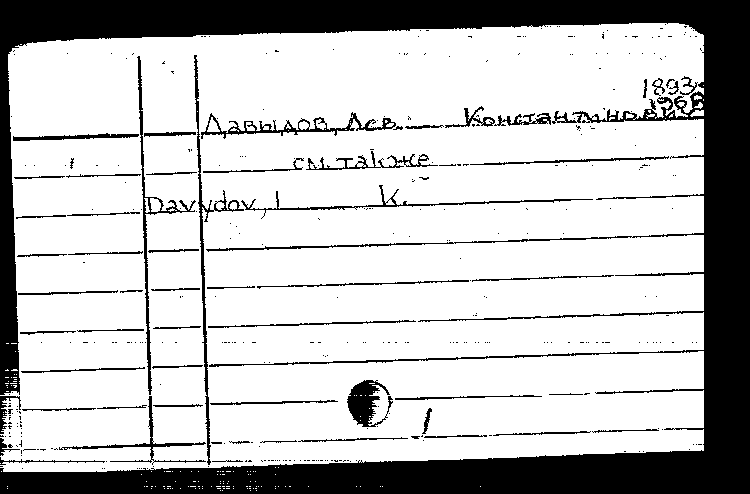 1893-
1968
Давыдов, Лев Константинович
см. также
Davydov, l K.